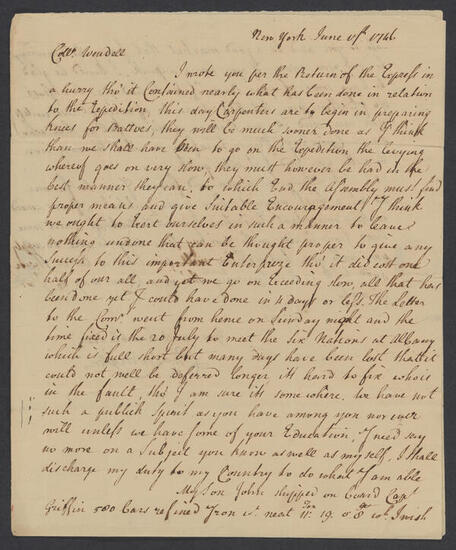 New York June 17th 1746
Collo. Wendell
I wrote you per the Return of the Express in
a hurry tho' it Contained nearly what has been done in relation
to the Expedition this day Carpenters are to begin in preparing
knees for Battoes, they will be much sooner done as I think
than we shall have Men to go on the Expedition the levying
whereof goes on very slow, they must however be had in the
best manner they can, to which End the Assembly must find
proper means and give Suitable Encouragement, I think
we ought to Exert ourselves in such a manner to leave
nothing undone that can be thought proper to give any
Success to this important Enterprize tho' it did cost one
half of our all, and yet we go on Exceeding slow, all that has
been done yet I could have done in 4 days or less. The Letter
to the Comrs. went from hence on Sunday night and the
time fixed is the 20 July to meet the Six Nations at Albany
which is full short but many days have been lost that it
could not well be deferred longer its hard to fix whois
in the fault, tho' I am sure its some where. We have not
such a publick Spirit as you have among you nor ever
will unless we have some of your Education, I need say
no more on a Subject you know as well as my self. I shall
discharge my duty to my Country to do what I am able
My Son John shipped on board Capt
Griffin 580 Bars refined Iron wt. neat 11: 19. 0 8 wh. I wish